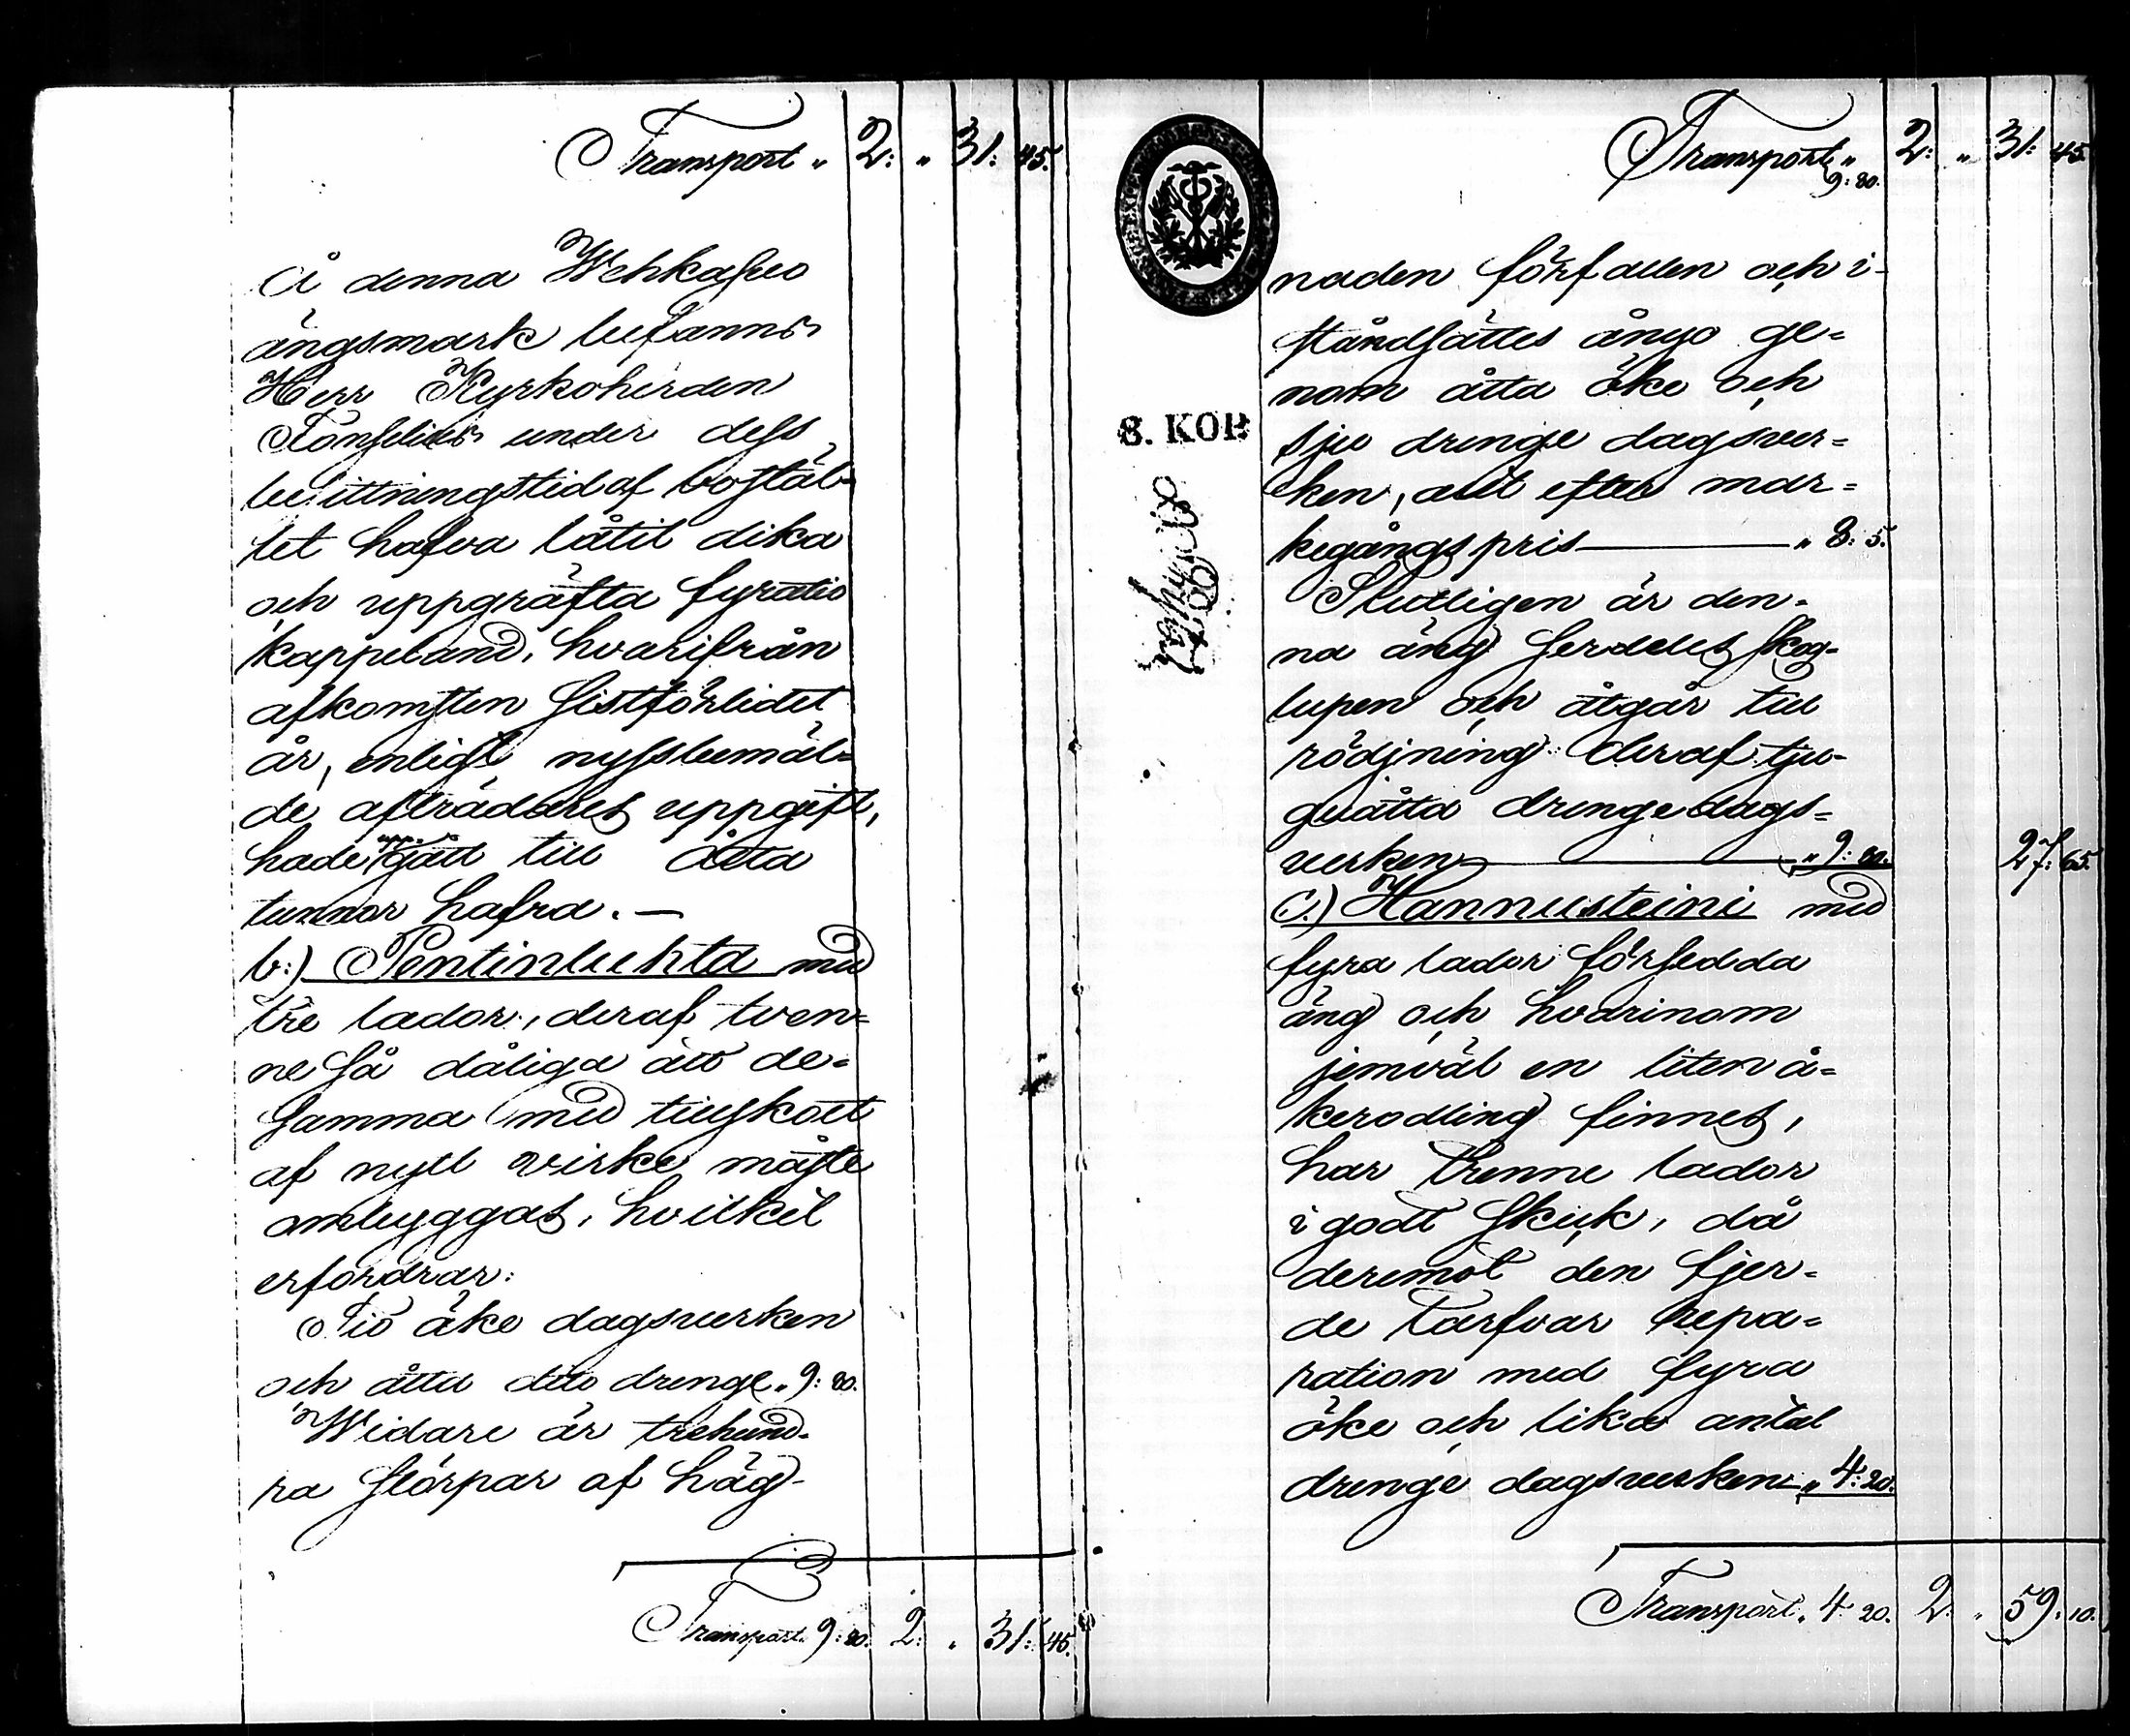 Transport " 2: " 31: 45.
Å denna Wehkasuo
ängsmark befanns
Herr Kyrkoherden
under dess
besittningstid af bostäl-
let hafva låtit dika
och uppgräfta fyratio
kappeland, hvarifrån
afkomsten sistförlidet
år, enligt nyssbemäl=
de afträdares uppgift,
hade uppgått till Åtta
tunnor hafra. —
b:) Pentinluhta med
tre lador, deraf tven=
ne så dåliga att de=
samma med tillskott
af nytt virke måste
ombyggas, hvilket
erfordrar:
Tio öke dagsverken
och åtta dito drenge " 9: 80.
Widare är trehund-
ra störpar af häg-
Transport 9: 80. 2: " 31: 45.
Transport " 2: " 31: 45.
9: 80.
naden förfallen och i-
ståndsättes ånyo ge=
nom åtta öke och
sju drenge dagsver=
ken, allt efter mar=
kegångspris — " 8: 5.
Slutligen är den-
na äng serdeles skog-
lupen och åtgår till
rödjning deraf tju-
guåtta drengedags=
verken — " 9: 80. 27: 65.
C.) Hannusteini med
fyra lador försedda
äng och hvarinom
jemväl en liten å=
kerodling finnes,
har trenne lador
i godt skick, då
deremot den fjer=
de tarfvar repa=
ration med fyra
öke och lika antal
drenge dagsverken " 4: 20.
Transport " 4: 20. 2: " 59: 10.
8. KOP